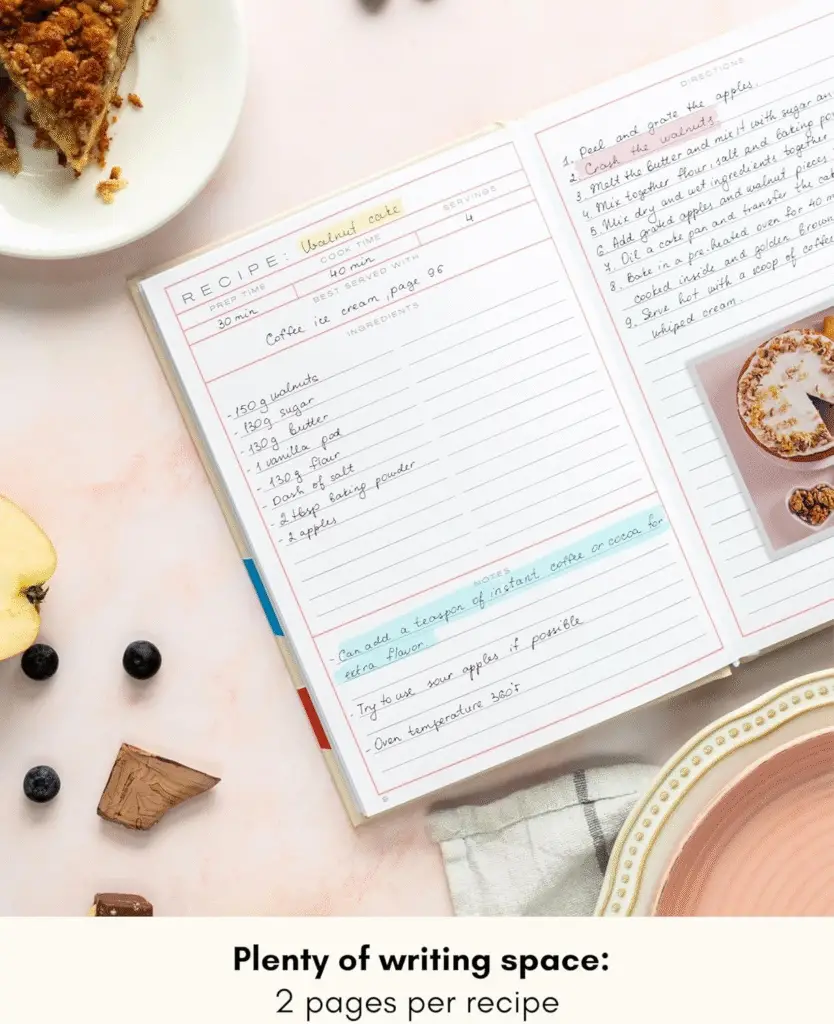 RECIPE: Walnut cake
PREP TIME
30 min
COOK TIME
40 min
SERVINGS
4
BEST SERVED WITH
Coffee ice cream, page 96
INGREDIENTS
- 150 g walnuts
- 130g sugar
- 130g butter
- 1 vanilla pod
- 130 g flour
- Dash of salt
- 2 tbsp baking powder
- 2 apples
NOTES
- Can add a teaspon of instant coffee or cocoa for
extra flavor
- Try to use sour apples if possible
- Oven temperature 360°F
DIRECTIONS
1. Peel and grate the apples.
2. Crash the walnuts
3. Melt the butter and mix it with sugar an
4. Mix together flour, salt and baking po
5. Mix dry and wet ingredients together
6. Add grated apples and walnut pieces
7. Oil a cake pan and transfer the
8. Bake in a pre-heated oven for 40 m
cooked inside and golden brown
9. Serve hot with a scoop of coffee
whiped cream.
Plenty of writing space:
2 pages per recipe